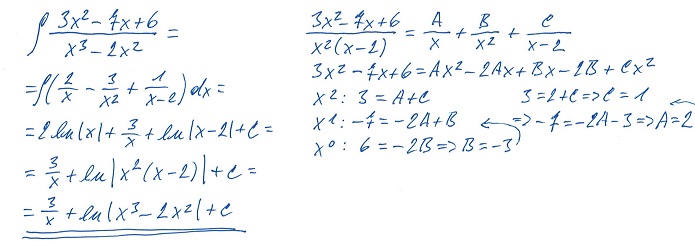 ∫ (3x² - 7x + 6)/(x³ - 2x²) =
= ∫(2/x - 3/x² + 1/(x-2)) dx =
= 2 ln|x| + 3/x + ln|x-2| + C =
= 3/x + ln|x²(x-2)| + C =
= 3/x + ln|x³ - 2x²| + C
(3x² - 7x + 6)/(x²(x-2)) = A/x + B/x² + C/(x-2)
3x² - 7x + 6 = Ax² - 2Ax + Bx - 2B + Cx²
x²: 3 = A + C 3 = 2 + C => C = 1
x¹: -7 = -2A + B => -7 = -2A - 3 => A = 2
x⁰: 6 = -2B => B = -3